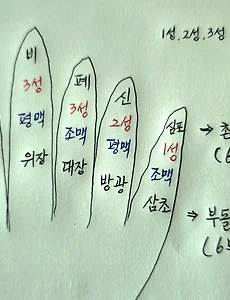 1성, 2성, 3성
비
3성
평맥
위장
폐
3성
조맥
대장
신
2성
평맥
방광
심포
1성
조맥
삼초
→ 촌
(6
→ 부돌
(6부